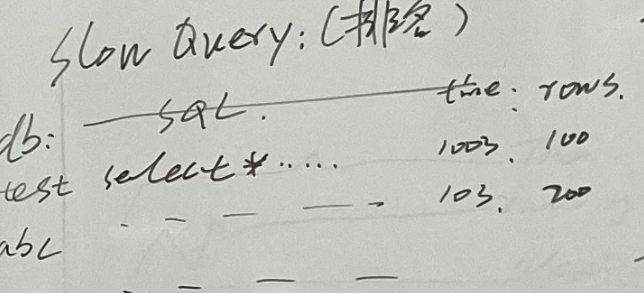 Slow Query: (排名)
db: SQL. time: rows.
test select * ..... 1003. 100
103. 200
abc